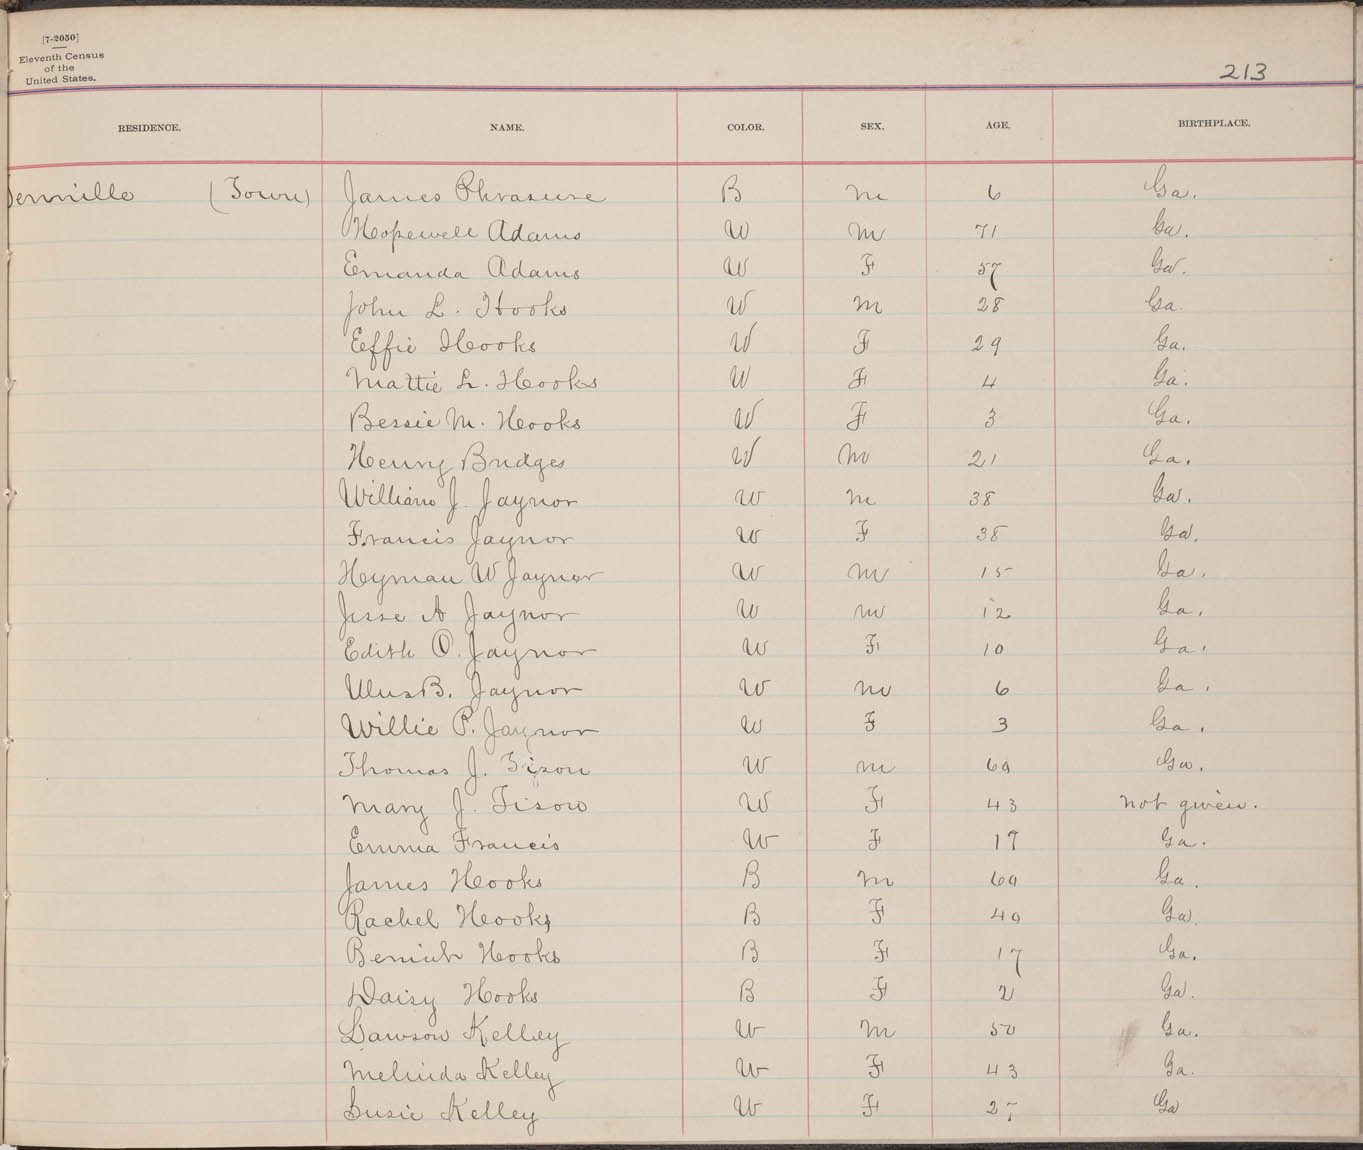 [7-2050]
Eleventh Census
of the
United States.
213
RESIDENCE. NAME. COLOR. SEX. AGE. BIRTHPLACE.
ennille (Town) James Phrasure B m 6 Ga.
Hopewell Adams W M 71 Ga.
Emanda Adams W F 57 Ga.
John L. Hooks W M 28 Ga.
Eeffie Hooks W F 29 Ga.
Mattie L. Hooks W F 4 Ga.
Bessie M. Hooks W F 3 Ga.
Henry Bridges W M 21 Ga.
William J. Jaynor W M 38 Ga.
Francis Jaynor W F 38 Ga.
Heyman W Jaynor W M 15 Ga.
Jesse A Jaynor W M 12 Ga.
Edith O. Jaynor W F 10 Ga.
B. Jaynor W M 6 Ga.
Willie P. Jaynor W F 3 Ga.
Thomas J. Tison W M 69 Ga.
Mary J. Tison W F 43 not given.
Emma Francis W F 17 Ga.
James Hooks B M 69 Ga.
Rachel Hooks B F 49 Ga.
Hooks B F 17 Ga.
Daisy Hooks B F 2 Ga.
Lawson Kelley W M 50 Ga.
Melinda Kelley W F 43 Ga.
Susie Kelley W F 27 Ga